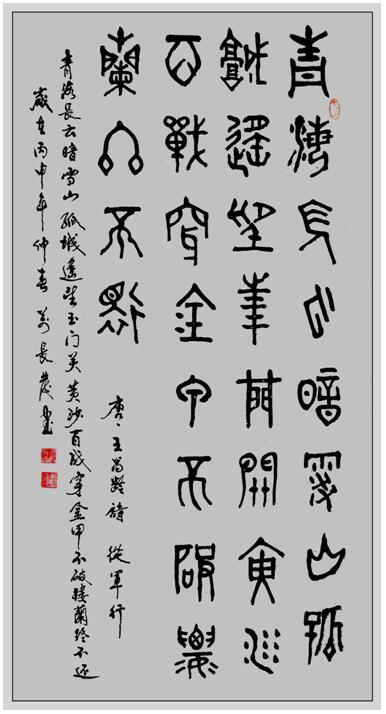 青海長雲暗雪山孤
城遙望玉門關黃沙
百戰穿金甲不破樓
蘭終不還
唐、王昌齡詩 從軍行
青海長云暗雪山孤城遙望玉门关黄沙百战穿金甲不破楼蘭终不还
歲在丙申年仲春